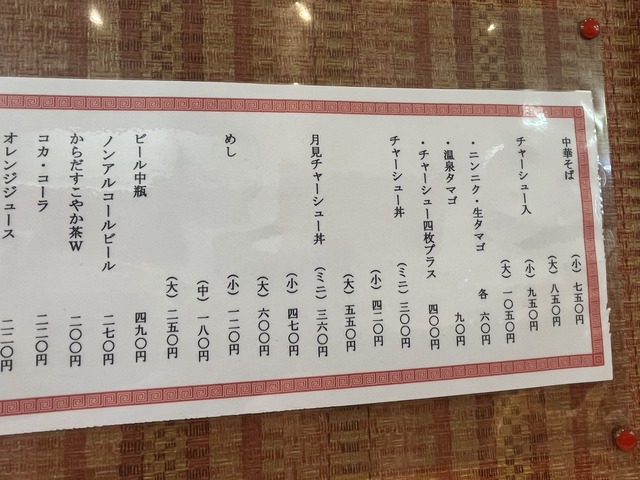 中華そば
(小) 七五〇円
(大) 八五〇円
チャーシュー入
(小) 九五〇円
(大) 一〇五〇円
・ニンニク・生タマゴ 各 六〇円
・温泉タマゴ 九〇円
・チャーシュー四枚プラス 四〇〇円
チャーシュー丼
(ミニ) 三〇〇円
(小) 四二〇円
(大) 五五〇円
月見チャーシュー丼
(ミニ) 三六〇円
(小) 四七〇円
(大) 六〇〇円
めし
(小) 一二〇円
(中) 一八〇円
(大) 二五〇円
ビール中瓶 四九〇円
ノンアルコールビール 二七〇円
からだすこやか茶W 二〇〇円
コカ・コーラ 二二〇円
オレンジジュース 二二〇円